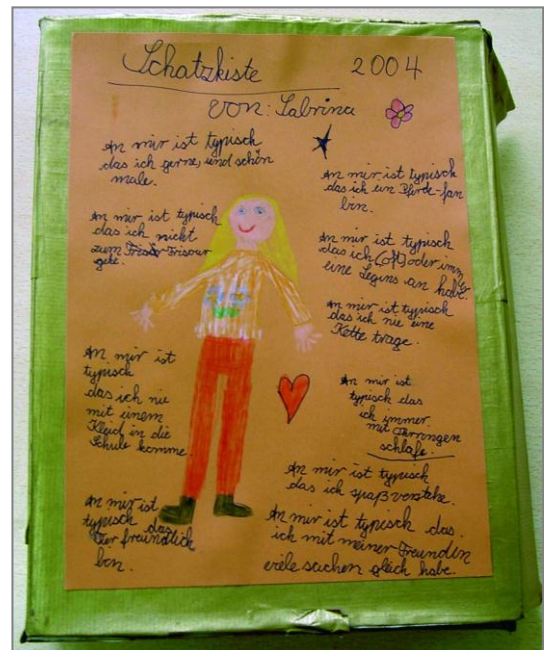 Schatzkiste 2004
von: Sabrina
An mir ist typisch
das ich gerne, und schön
male.
An mir ist typisch
das ich nicht
zum Frisör Frisour
gehe.
An mir ist
typisch
das ich nie
mit einem
Kleid in die
Schule komme
An mir ist
typisch das
freundlich
bin.
An mir ist typisch
das ich ein Pferde-fan
bin.
An mir ist typisch
das ich (oft) oder immer
eine Legins an habe.
An mir ist typisch
das ich nie eine
Kette trage.
An mir ist
typisch das
ich immer
mit
schlafe.
An mir ist typisch
das ich spaß verstehe.
An mir ist typisch das
ich mit meiner Freundin
viele sachen gleich habe.